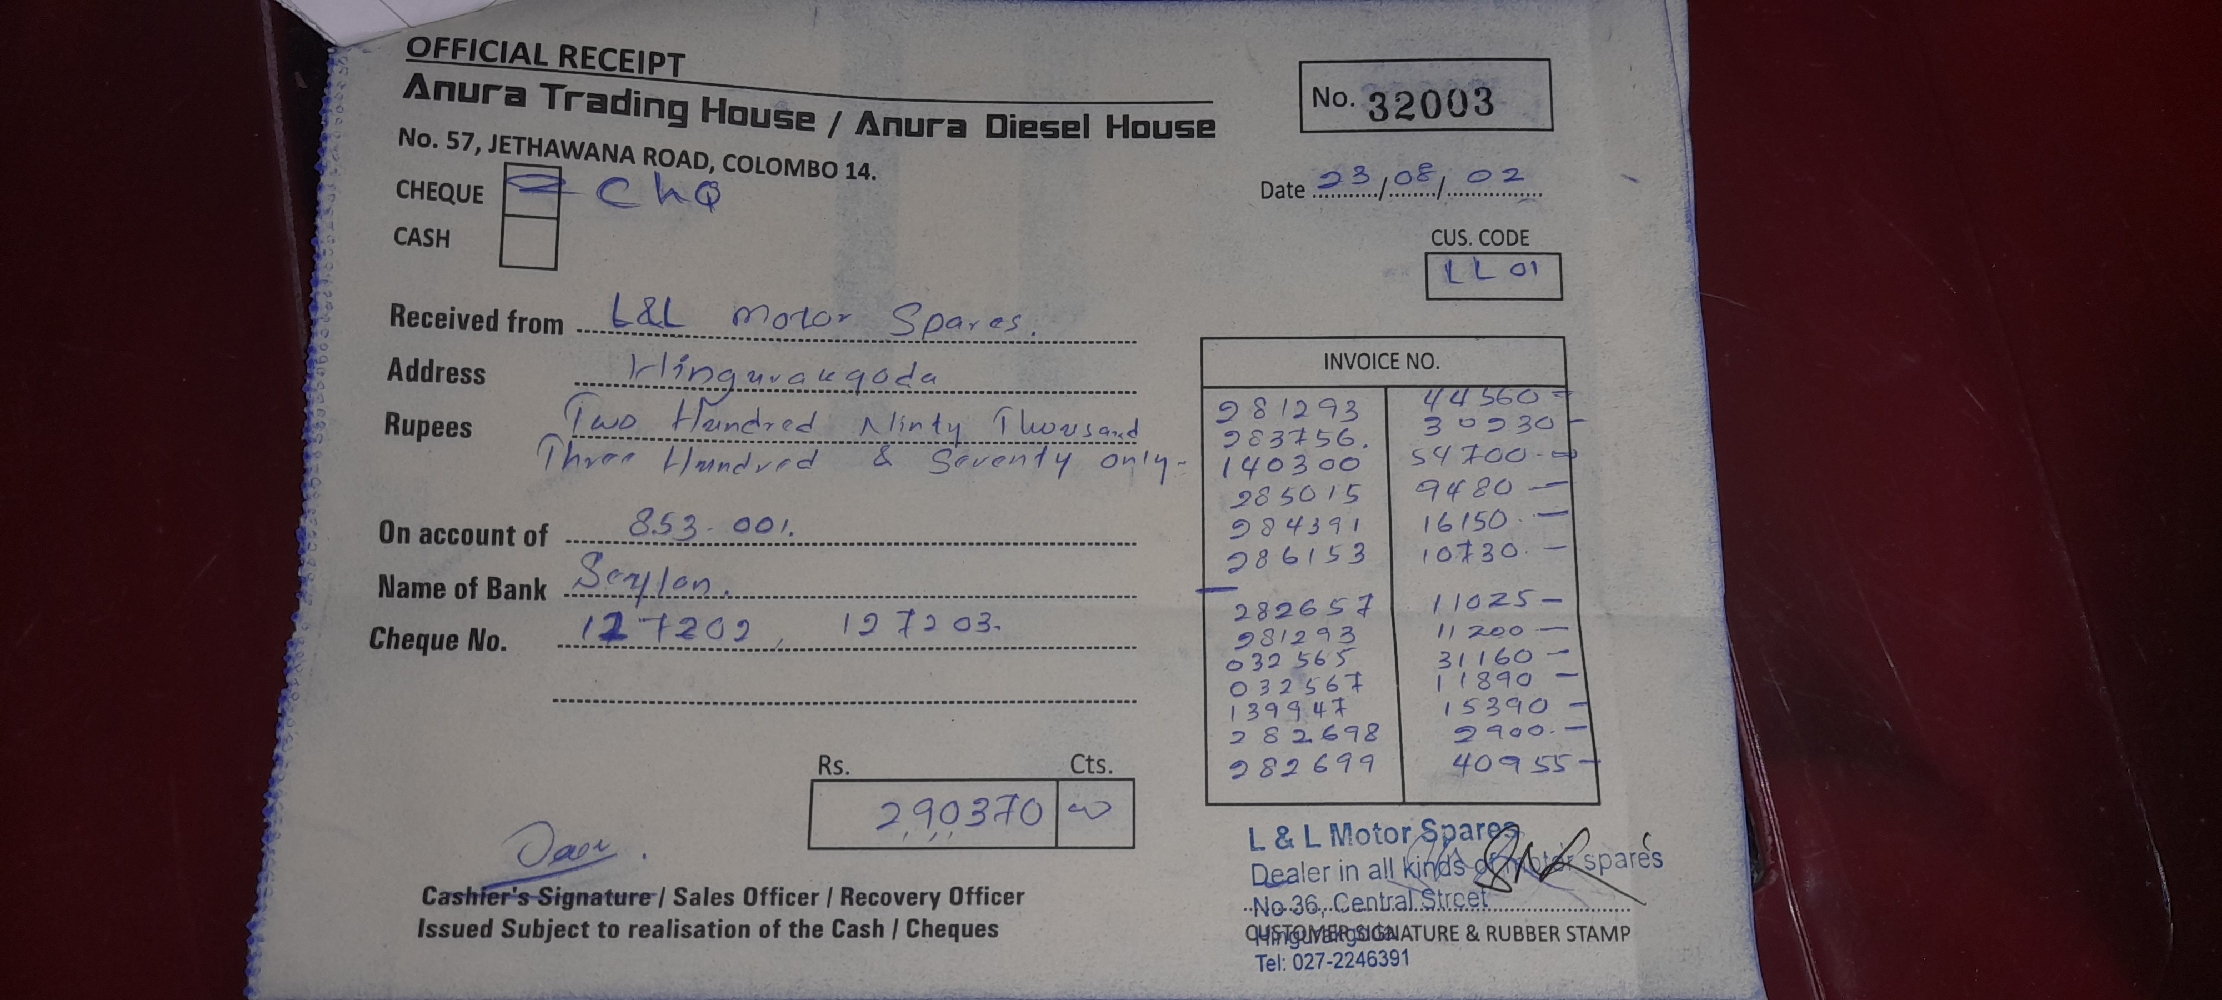 OFFICIAL RECEIPT
Anura Trading House / Anura Diesel House
No. 57, JETHAWANA ROAD, COLOMBO 14.
No. 32003
CHEQUE ChQ
Date 23/08/02
CASH
CUS. CODE
LL 01
Received from L&L Motor Spares.
Address Hingurakgoda
Rupees Two Hundred Ninty Thousand
Three Hundred & Seventy only-
On account of 853-001.
Name of Bank Seylan.
Cheque No. 127202, 127203.
INVOICE NO.
281293 44560-
283756. 30230-
140300 54700-
285015 9480-
284391 16150.-
286153 10730.-
282657 11025-
281293 11200-
032565 31160-
032567 11890-
139947 15390-
282698 2900.-
282699 40955-
Rs. Cts.
290370 00
Cashier's Signature / Sales Officer / Recovery Officer
Issued Subject to realisation of the Cash / Cheques
L & L Motor Spares
Dealer in all kinds of motor spares
No 36, Central Street
Hingurakgoda
CUSTOMER SIGNATURE & RUBBER STAMP
Tel: 027-2246391